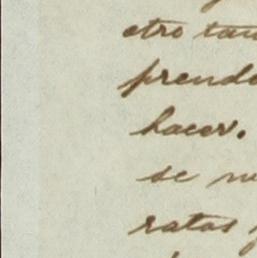 otro tan
prende
hacer.
se
ratos